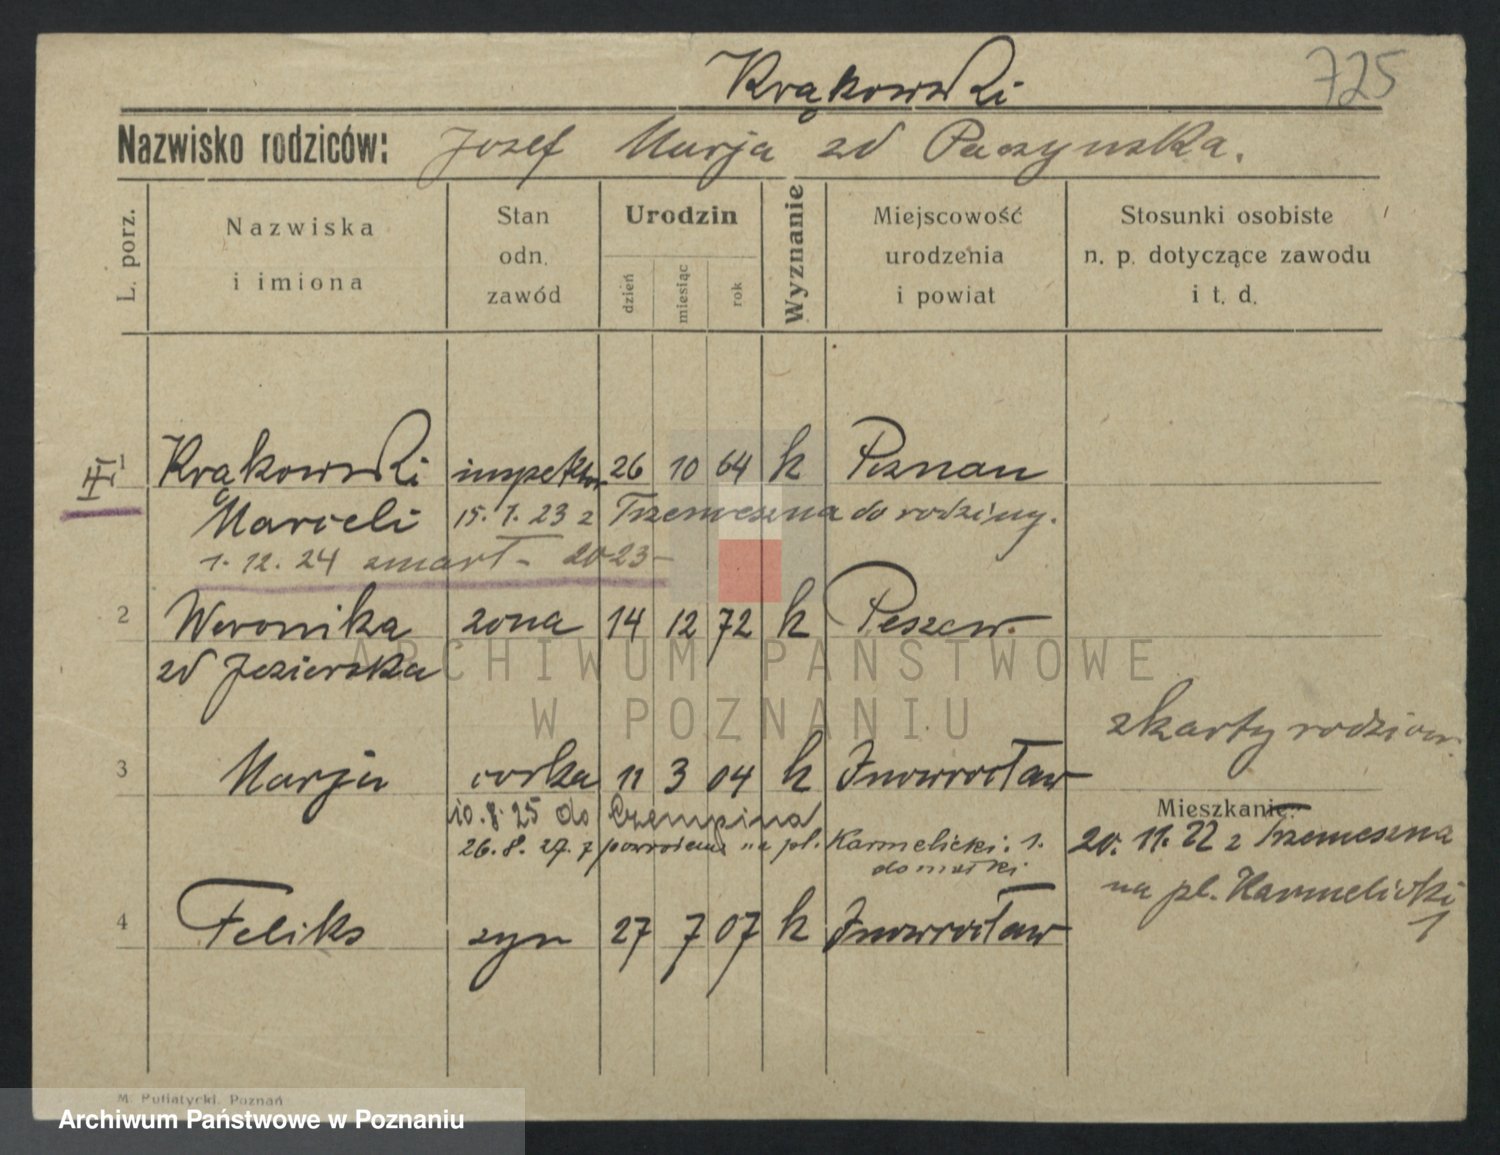 Krąkowski
725
Nazwisko rodziców: Jozef Marja zd Paczynska.
L. porz.
Nazwiska
i imiona
Stan
odn.
zawód
Urodzin
dzień
miesiąc
rok
Wyznanie
Miejscowość
urodzenia
i powiat
Stosunki osobiste
n. p. dotyczące zawodu
i t. d.
III
1 Krąkowski inspektor 26 10 64 k Poznan
Marceli 15. 1. 23 z Trzemeszna do rodziny.
1. 12. 24 zmarł - 2023 -
2 Weronika zona 14 12 72 k Peszew.
zd Jezierska
ARCHIWUM PAŃSTWOWE
W POZNANIU
z karty rodzicow.
3 Marja corka 11 3 04 k Inowrocław
Mieszkanie:
10. 8. 25 do Czempina
20. 11. 22 z Trzemeszna
26. 8. 27. z powrotem na pl. Karmelicki. 1.
do matki
na pl. Karmelicki
1
4 Feliks syn 27 7 07 k Inowrocław
M. Putiatycki, Poznań
Archiwum Państwowe w Poznaniu